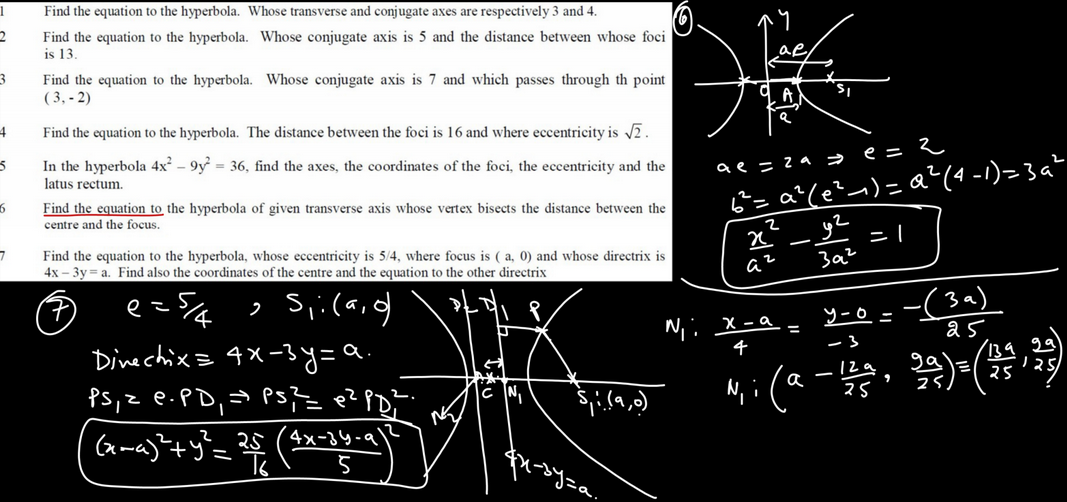 1 Find the equation to the hyperbola. Whose transverse and conjugate axes are respectively 3 and 4.
2 Find the equation to the hyperbola. Whose conjugate axis is 5 and the distance between whose foci
is 13.
3 Find the equation to the hyperbola. Whose conjugate axis is 7 and which passes through th point
( 3, - 2)
4 Find the equation to the hyperbola. The distance between the foci is 16 and where eccentricity is √2 .
5 In the hyperbola 4x² – 9y² = 36, find the axes, the coordinates of the foci, the eccentricity and the
latus rectum.
6 Find the equation to the hyperbola of given transverse axis whose vertex bisects the distance between the
centre and the focus.
7 Find the equation to the hyperbola, whose eccentricity is 5/4, where focus is ( a, 0) and whose directrix is
4x – 3y = a. Find also the coordinates of the centre and the equation to the other directrix
⑥
y
ae
O A S₁
a
ae = 2a ⇒ e = 2
b² = a²(e²-1) = a²(4-1) = 3a²
x²/a² - y²/3a² = 1
⑦ e = 5/4 , S₁: (a, 0)
Directrix ≡ 4x-3y = a.
PS₁ = e·PD₁ ⇒ PS₁² = e² PD₁²
(x-a)² + y² = 25/16 ((4x-3y-a)/5)²
P
C N₁ S₁: (a, 0)
N₂
4x-3y = a.
N₁: (x-a)/4 = (y-0)/-3 = -(3a)/25
N₁: (a - 12a/25, 9a/25) ≡ (13a/25, 9a/25)